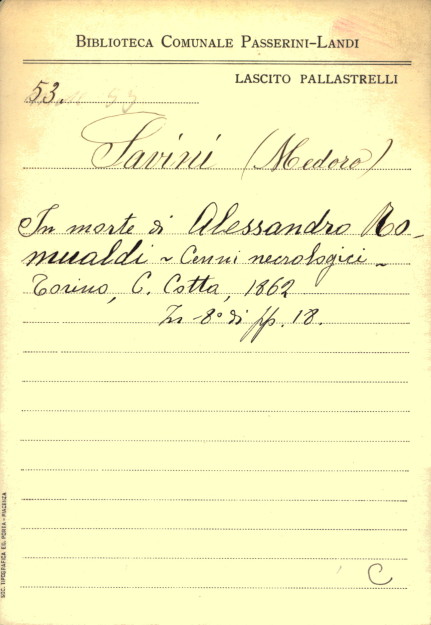 BIBLIOTECA COMUNALE PASSERINI-LANDI
LASCITO PALLASTRELLI
53.
Savini (Medoro)
In morte di Alessandro Ro-
mualdi ~ Cenni necrologici ~
Torino, C. Cotta, 1862
In-8° di pp. 18.
C
SOC. TIPOGRAFICA EX. PORTA - PIACENZA